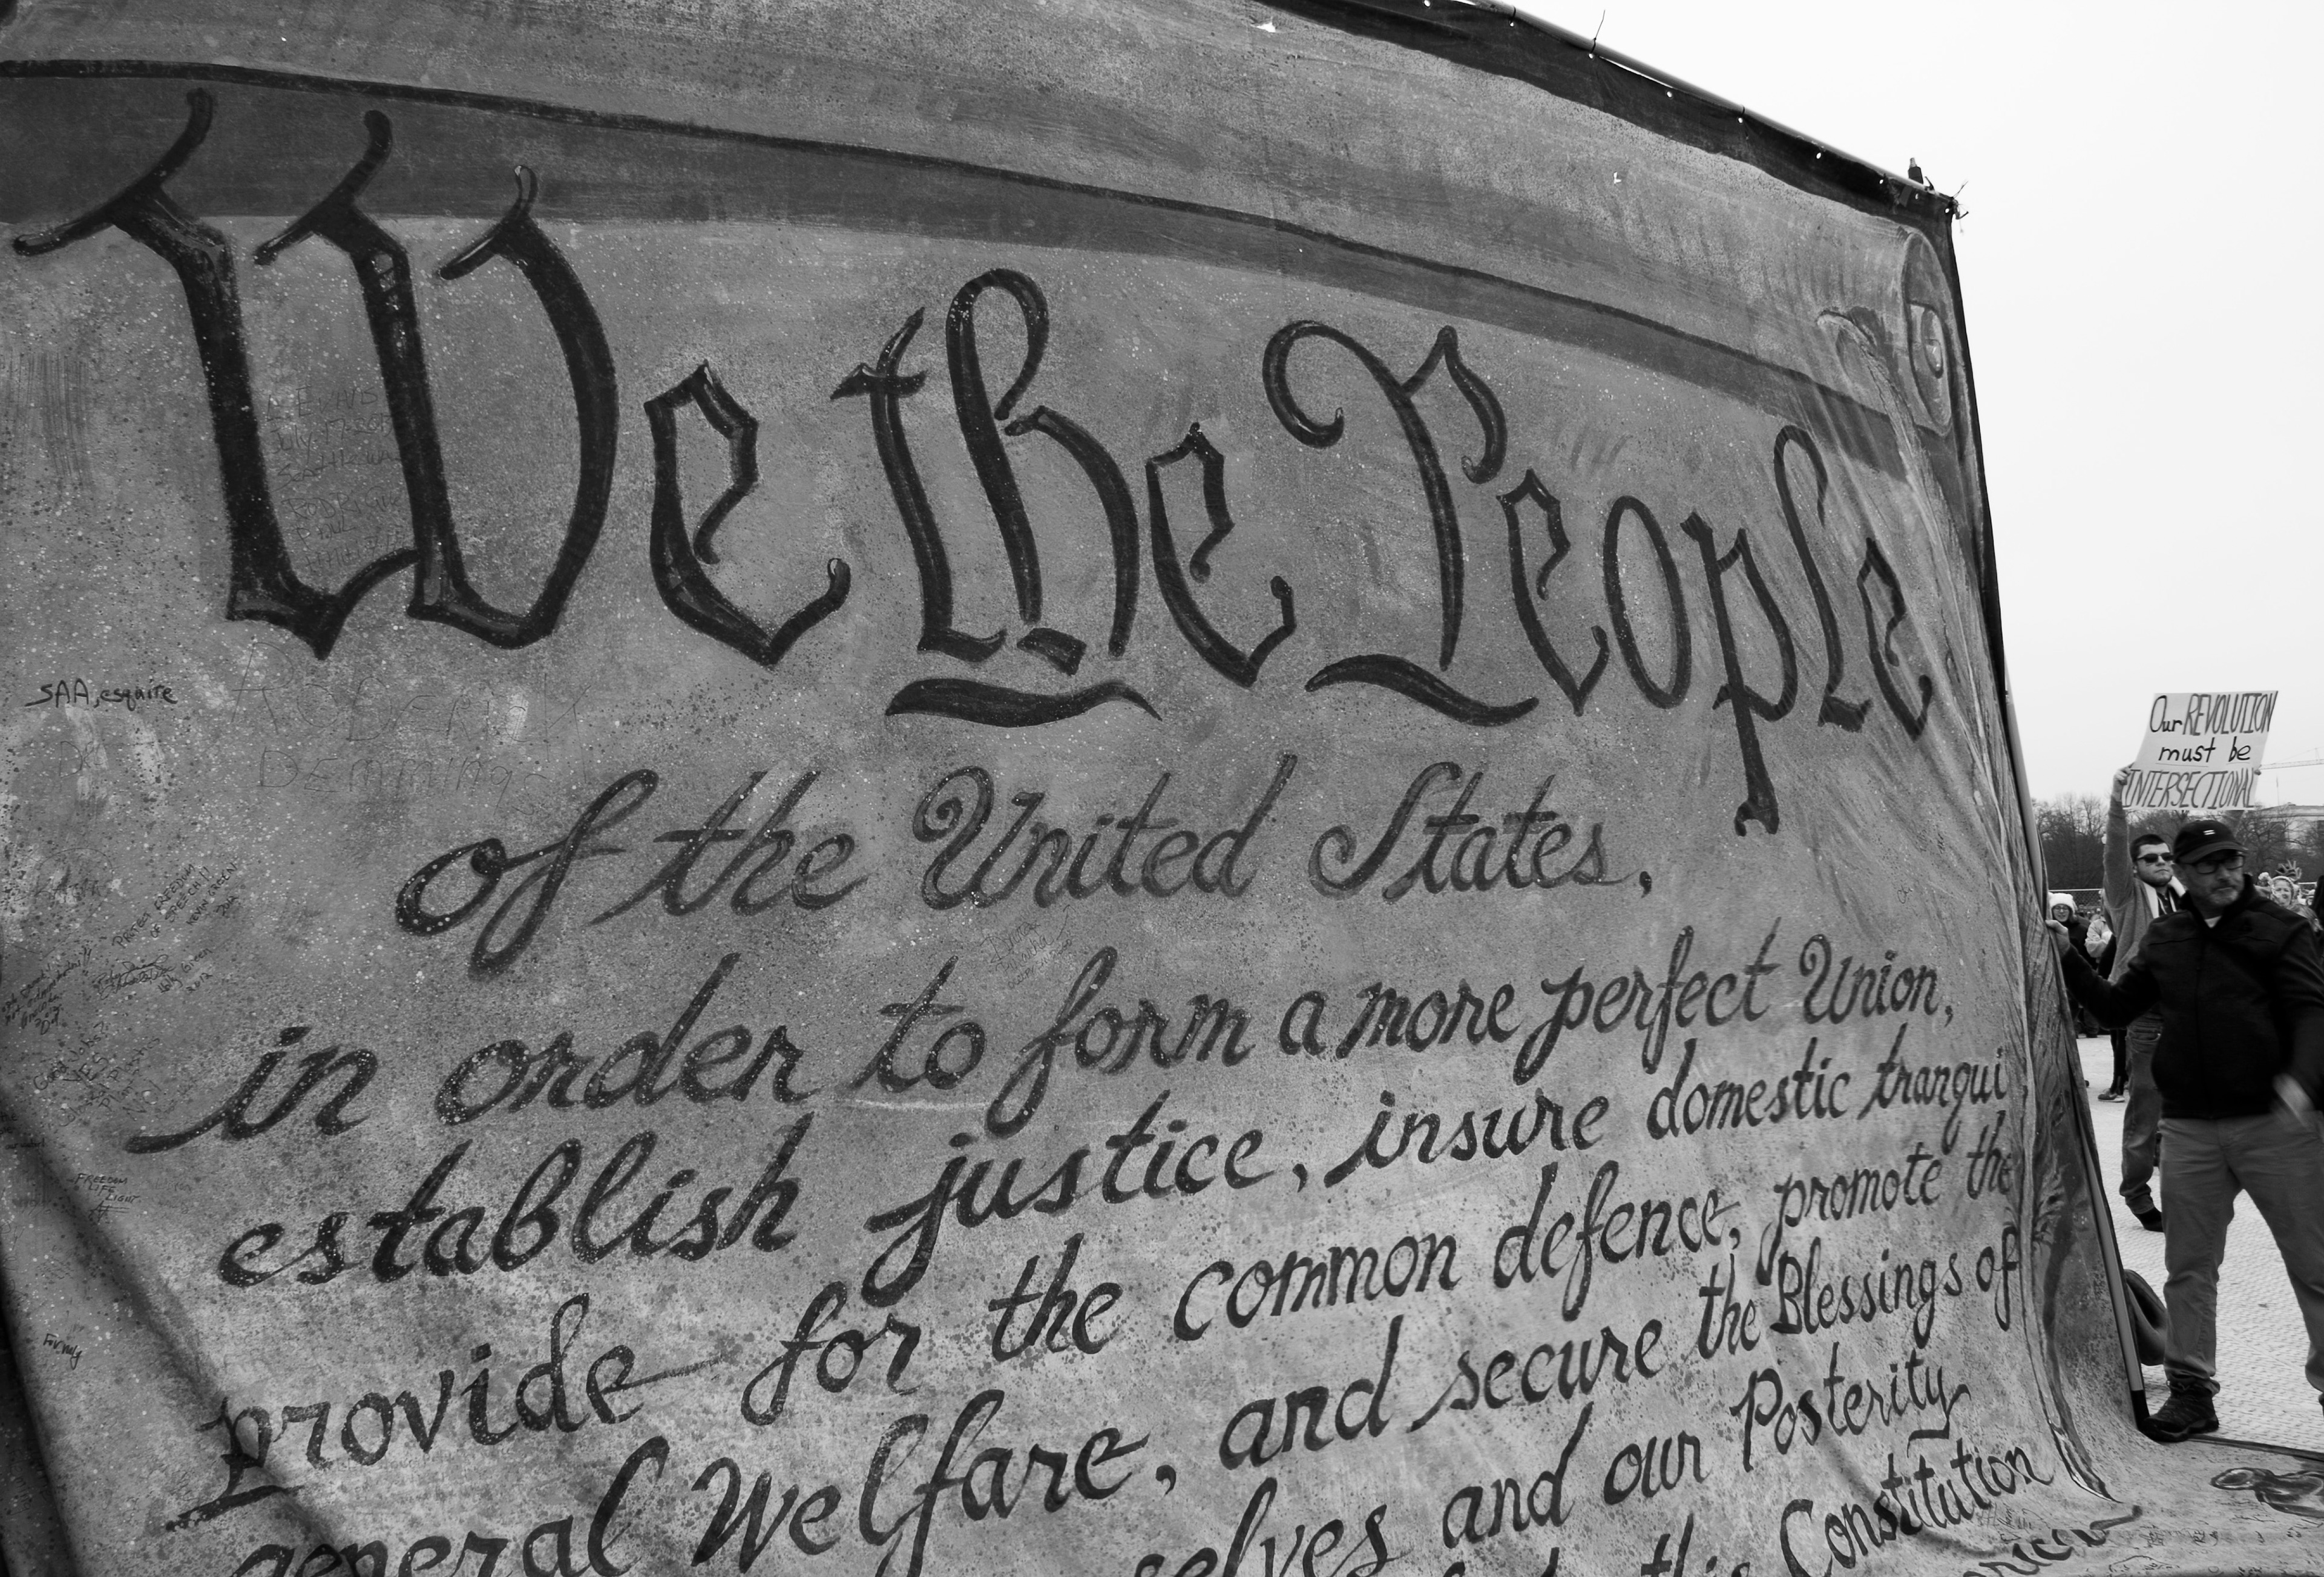 We the People
of the United States,
in order to form a more perfect Union,
establish justice, insure domestic tranqui
provide for the common defence, promote the
general Welfare, and secure the Blessings of
selves and our Posterity
this Constitution
SAA, esquire
PROTECT FREEDOM
OF SPEECH!!
KEVIN GREEN
FREEDOM
LIFE
LIGHT
Our REVOLUTION
must be
INTERSECTIONAL